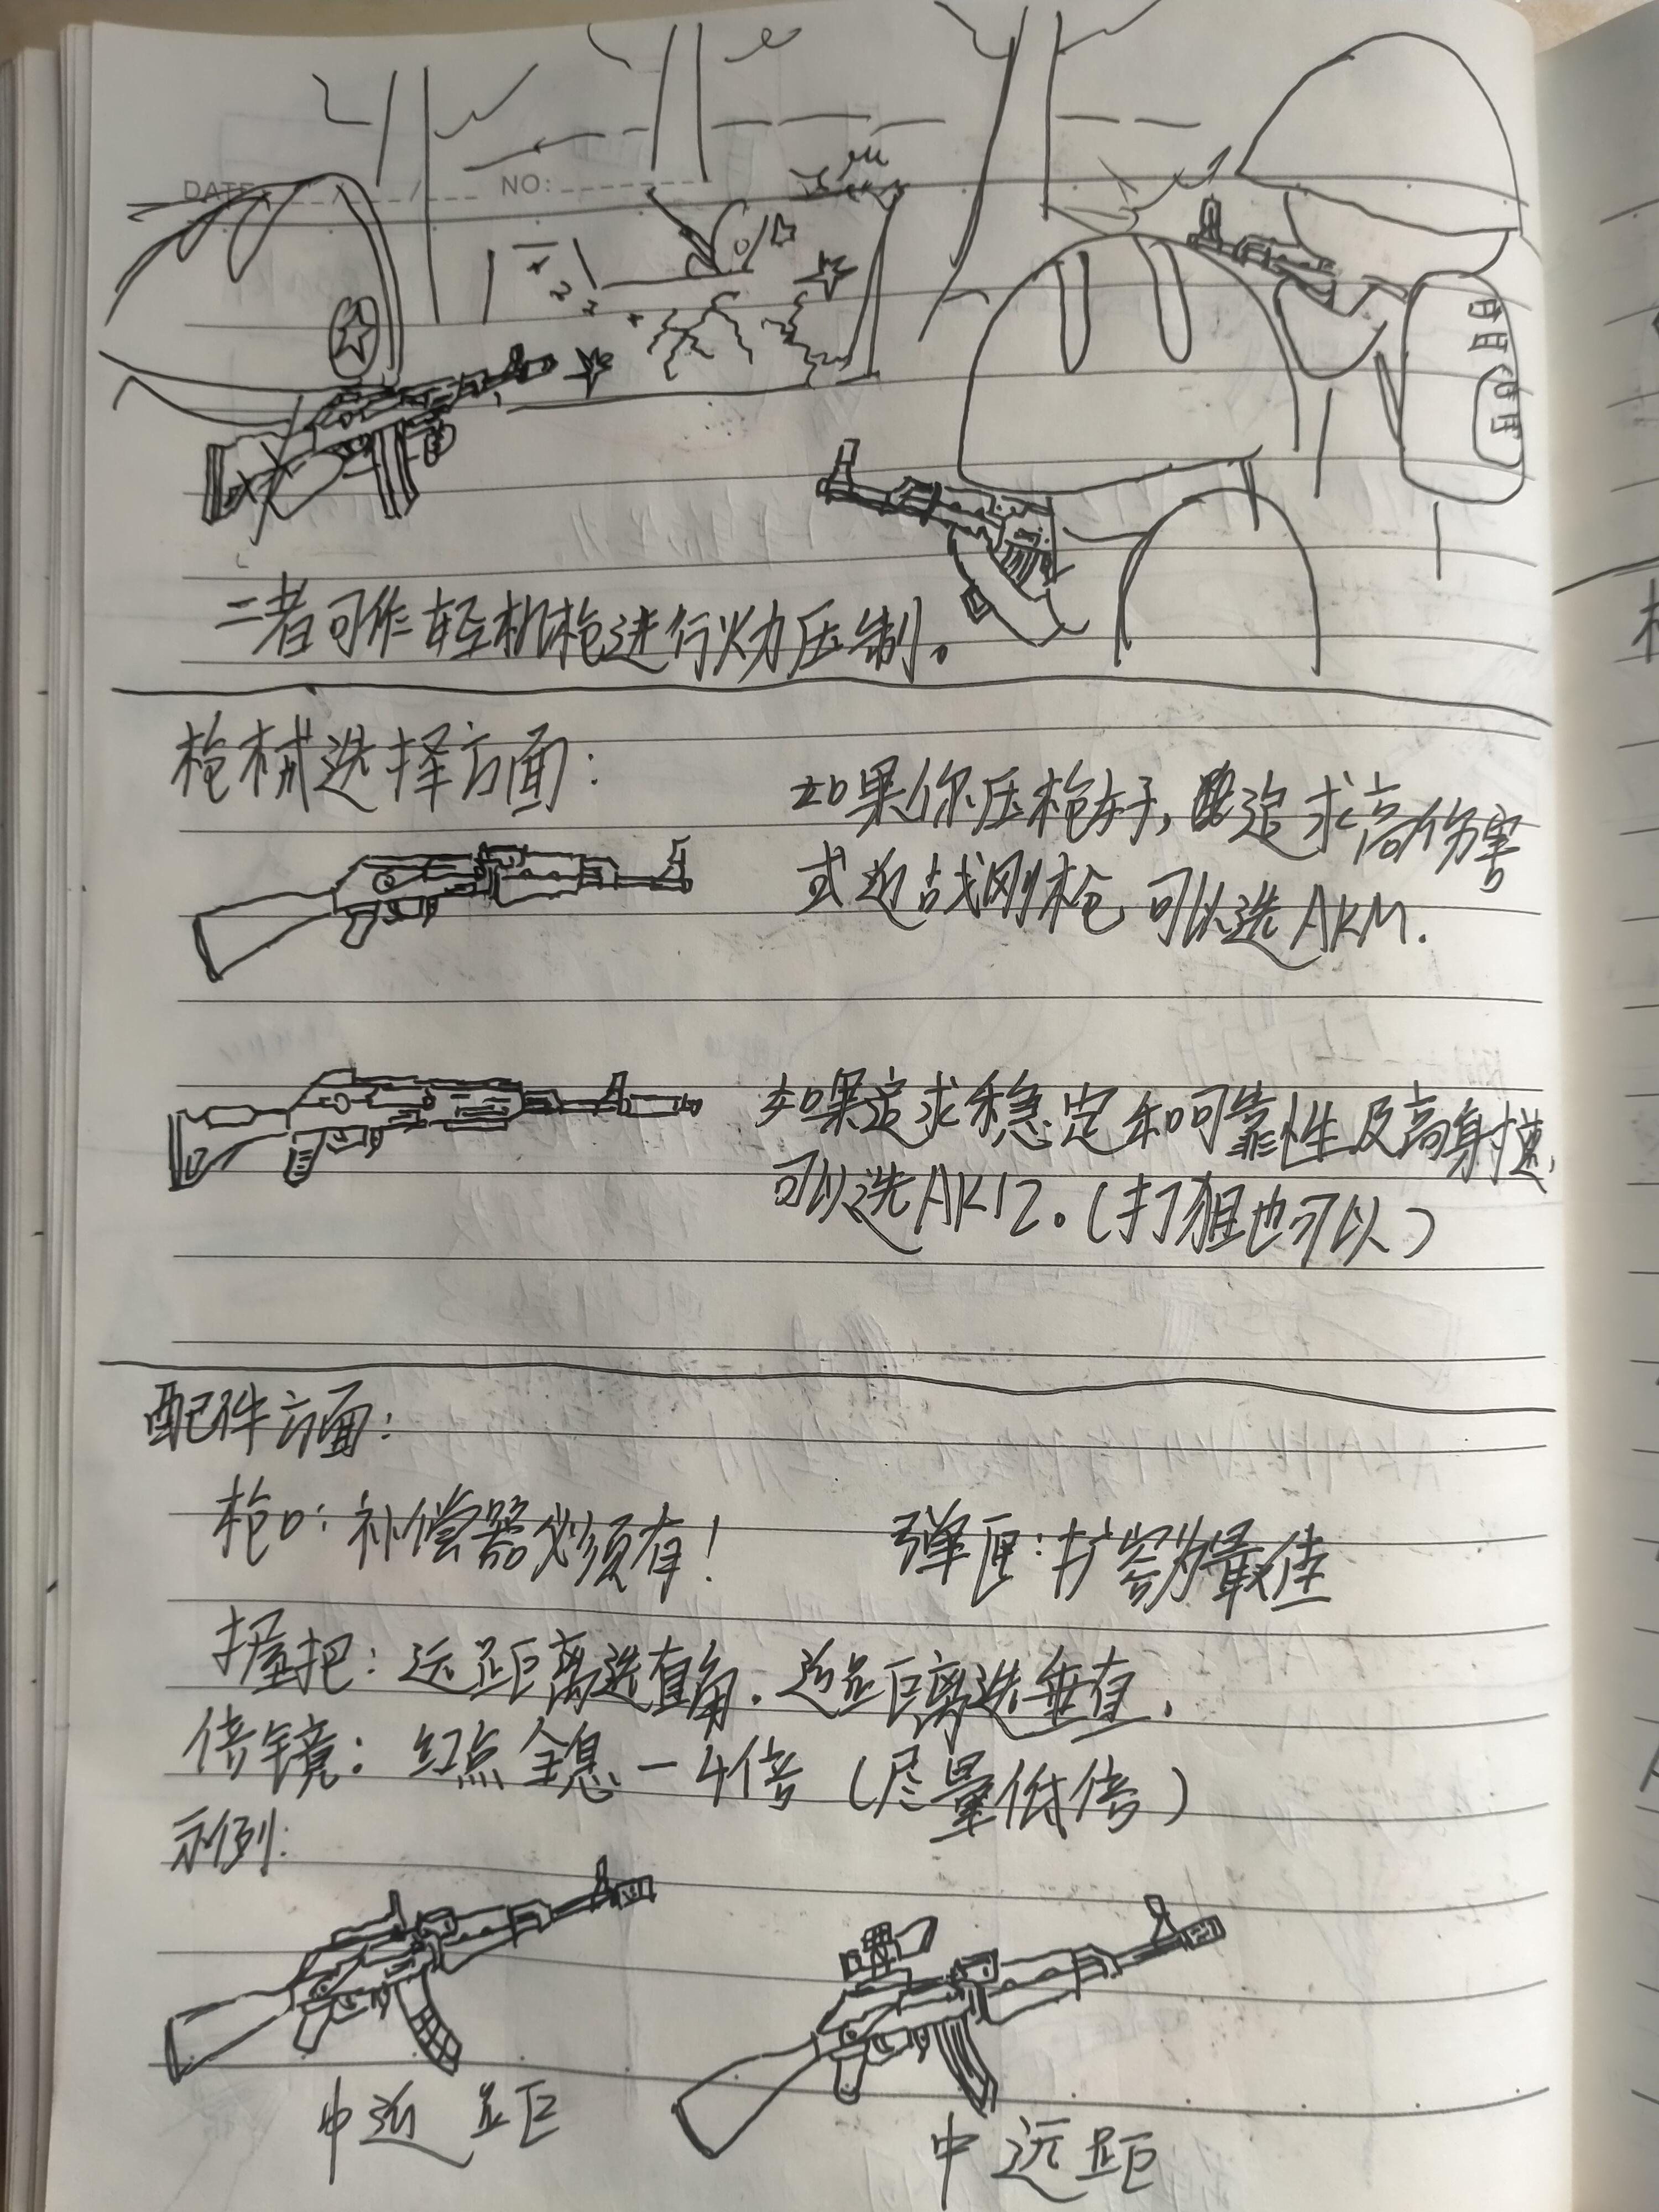 DATE / / NO:
二者可作轻机枪进行火力压制。
枪械选择方面:
如果你压枪好,追求高伤害
或近战刚枪 可以选AKM.
如果追求稳定和可靠性及高射速,
可以选AK12。(打狙也可以)
配件方面:
枪口: 补偿器必须有!
弹匣:扩容为最佳
握把: 远距离选直角. 近距离选垂直.
倍镜: 红点全息—4倍 (尽量低倍)
示例:
中近距
中远距